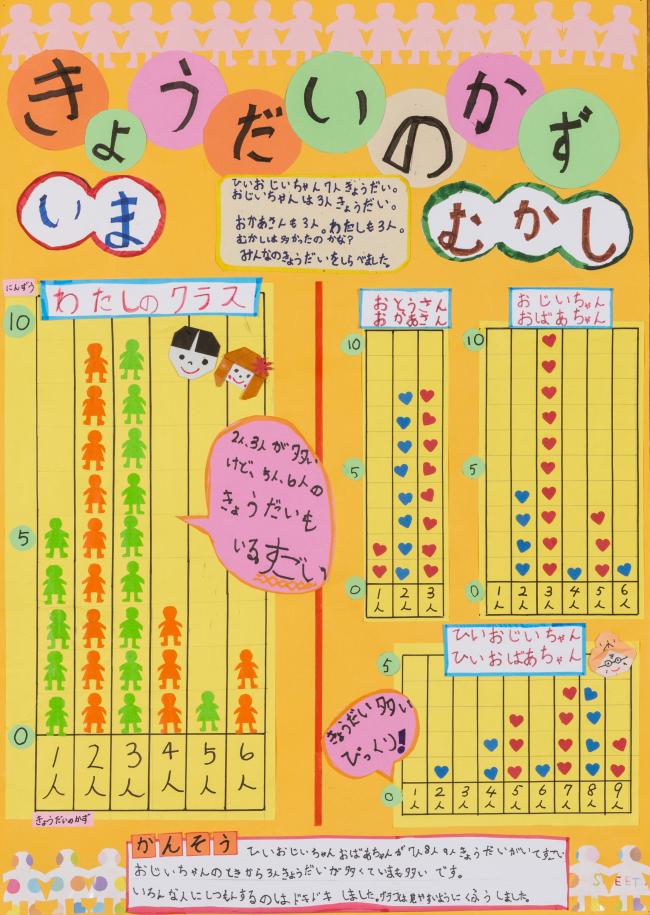 きょうだいのかず
いま
ひいおじいちゃん7人きょうだい。
おじいちゃんは3人きょうだい。
おかあさんも3人。わたしも3人。
むかしは多かったのかな?
みんなのきょうだいをしらべました。
むかし
にんずう
わたしのクラス
10
5
0
1人 2人 3人 4人 5人 6人
きょうだいのかず
2人、3人が多い
けど、5人、6人の
きょうだいも
いるすごい
おとうさん
おかあさん
10
5
0
1人 2人 3人
おじいちゃん
おばあちゃん
10
5
0
1人 2人 3人 4人 5人 6人
ひいおじいちゃん
ひいおばあちゃん
5
0
1人 2人 3人 4人 5人 6人 7人 8人 9人
きょうだい多い
びっくり!
かんそう
ひいおじいちゃんおばあちゃんが7人8人9人きょうだいがいてすごい
おじいちゃんのときから3人きょうだいが多くていまも多いです。
いろんな人にしつもんするのはドキドキしました。グラフは見やすいようにくふうしました。
SWEET